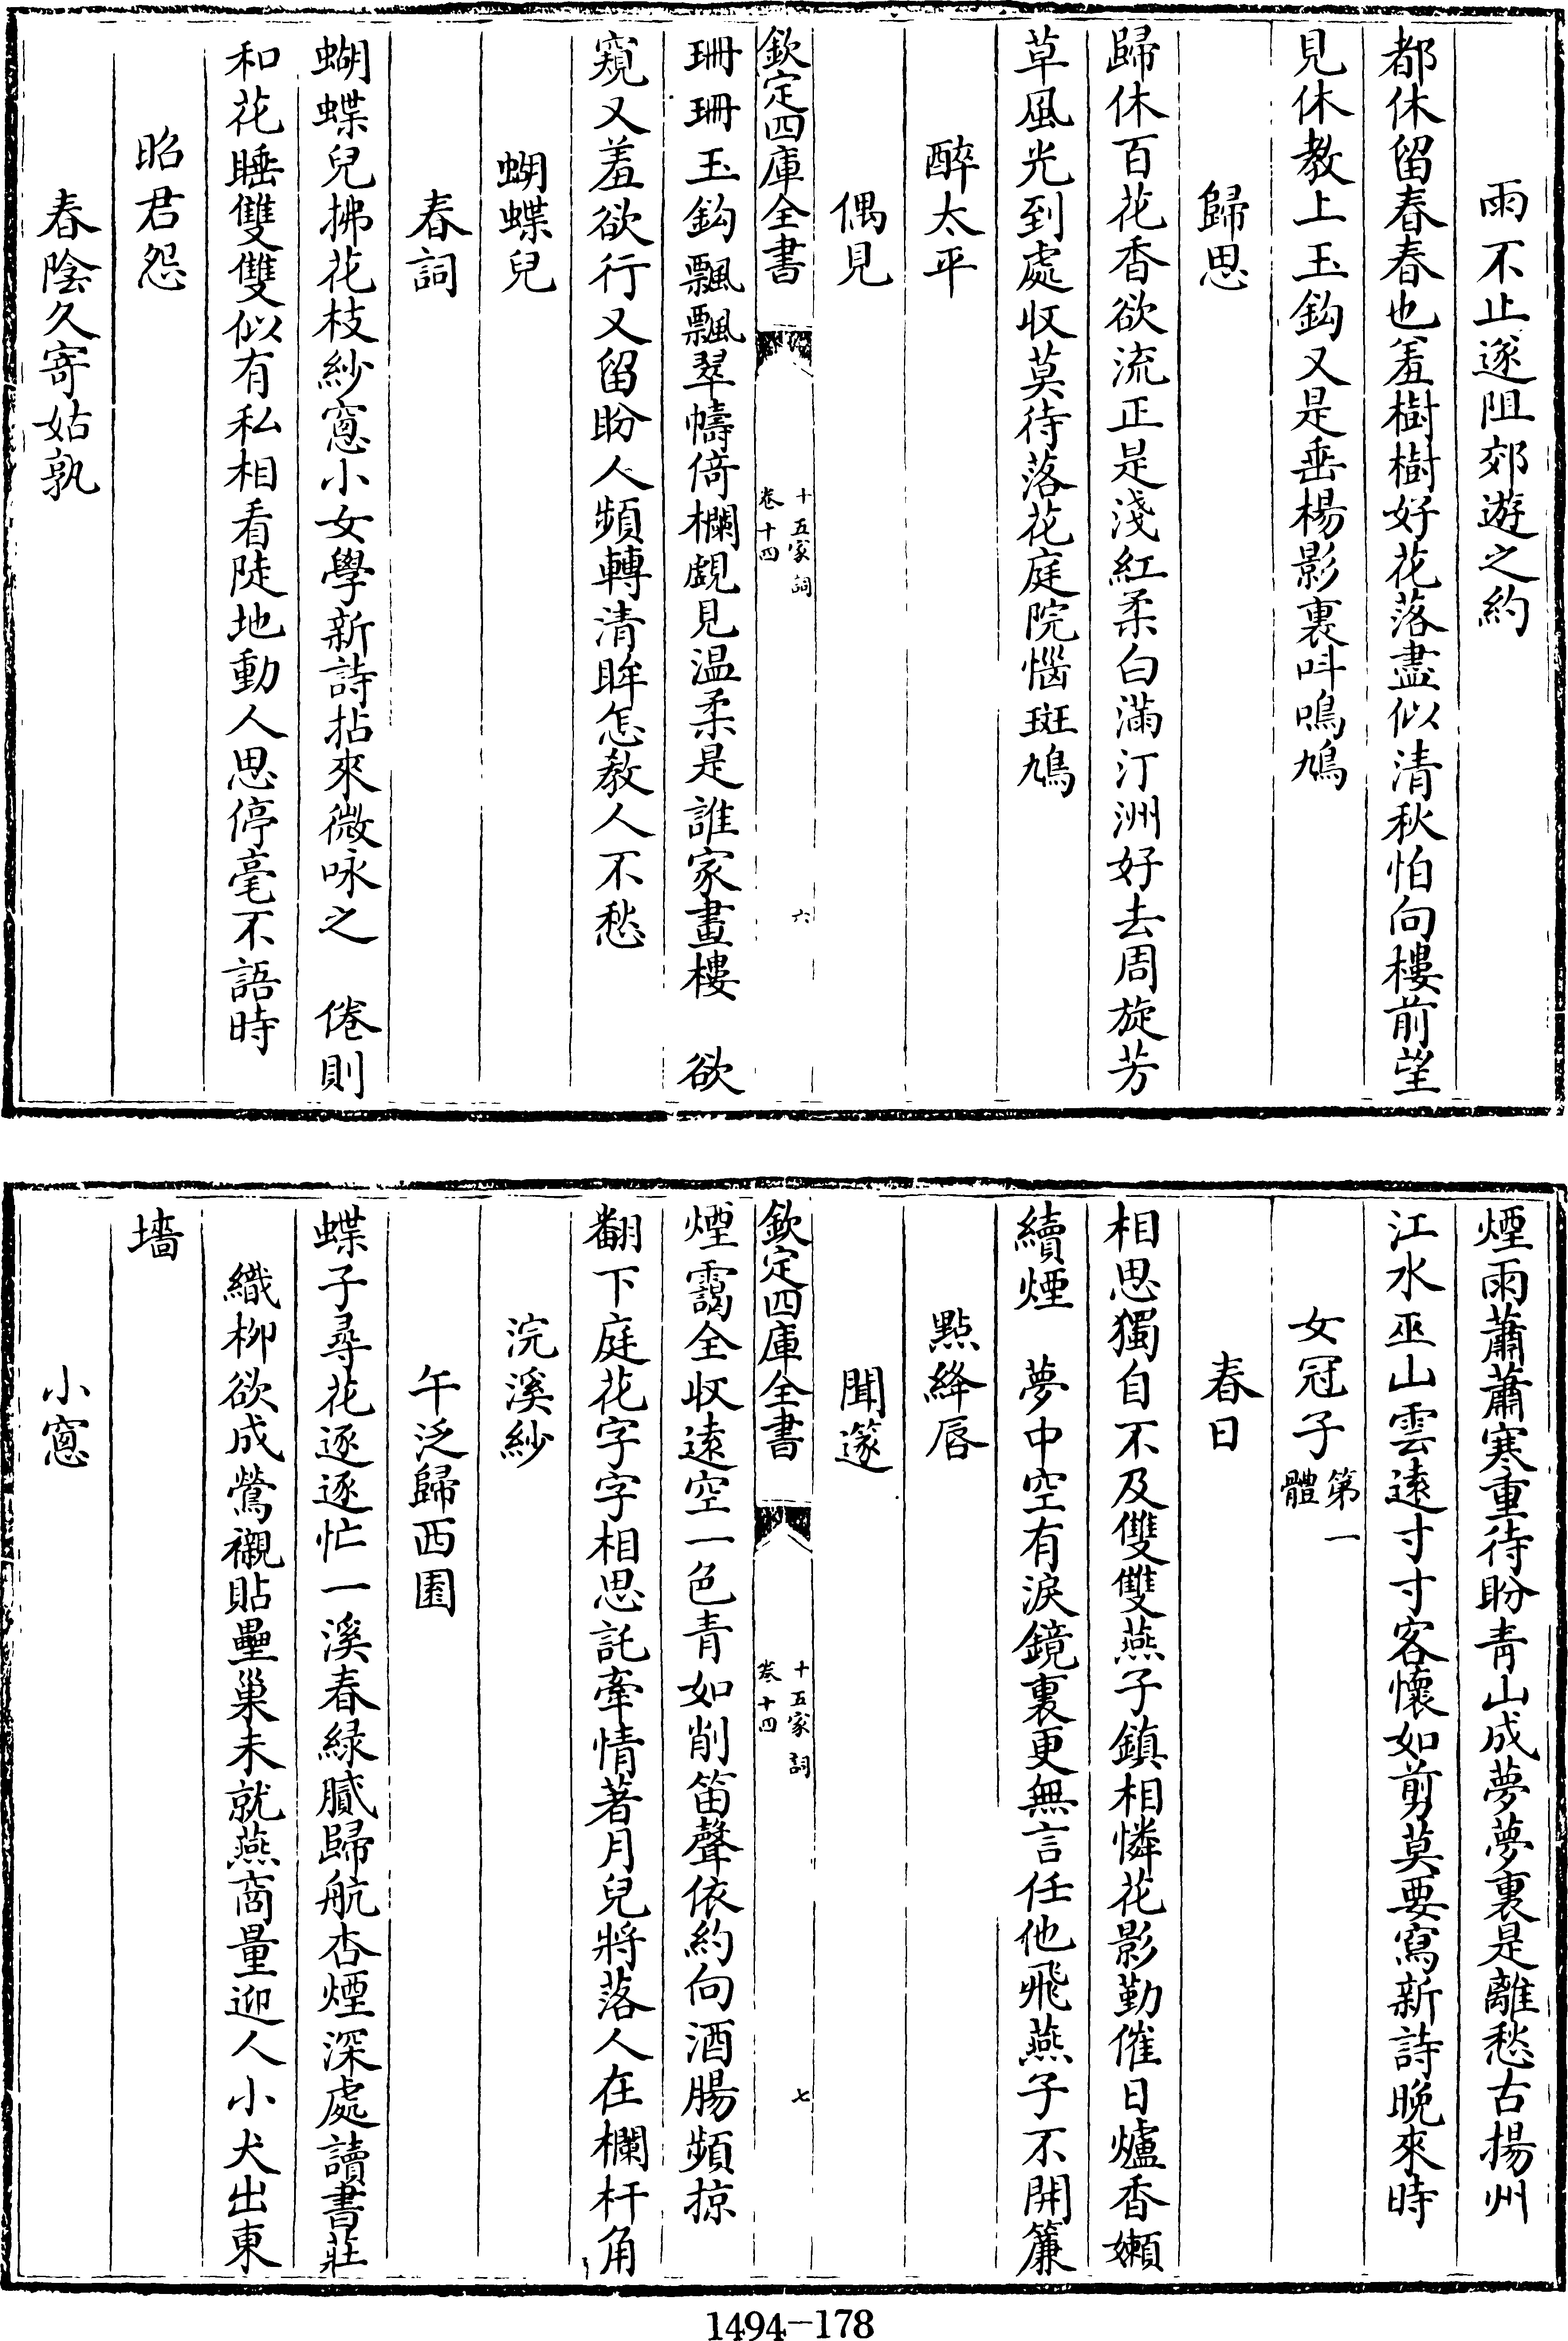 雨不止遂阻郊遊之約
都休留春春也羞樹樹好花落盡似清秋怕向樓前望
見休教上玉鈎又是垂楊影裏呌鳴鳩
歸思
歸休百花香欲流正是淺紅柔白滿汀洲好去周旋芳
草風光到處収莫待落花庭院惱斑鳩
醉太平
偶見
欽定四庫全書
十五家詞
卷十四
六
珊珊玉鈎飄飄翠幬倚欄覷見温柔是誰家畫樓　欲
窺又羞欲行又留盼人頻轉清眸怎教人不愁
蝴蝶兒
春詞
蝴蝶兒拂花枝紗窻小女學新詩拈來微咏之　倦則
和花睡雙雙似有私相看陡地動人思停毫不語時
昭君怨
春陰久寄姑孰
煙雨蕭蕭寒重待盼青山成夢夢裏是離愁古揚州
江水巫山雲遠寸寸客懷如剪莫要寫新詩晚來時
女冠子第一體
春日
相思獨自不及雙雙燕子鎮相憐花影勤催日爐香嬾
續煙　夢中空有淚鏡裏更無言任他飛燕子不開簾
點絳唇
聞篴
欽定四庫全書
十五家詞
卷十四
七
煙靄全収遠空一色青如削笛聲依約向酒腸頻掠
翻下庭花字字相思託牽情著月兒將落人在欄杆角
浣溪紗
午泛歸西園
蝶子尋花逐逐忙一溪春緑膩歸航杏煙深處讀書莊
織柳欲成鶯襯貼壘巢未就燕商量迎人小犬出東
墻
小窻
1494-178